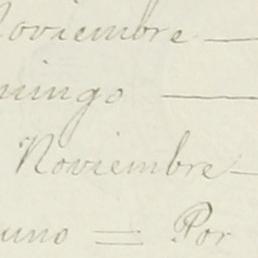 Noviembre —
mingo —
Noviembre —
uno = Por